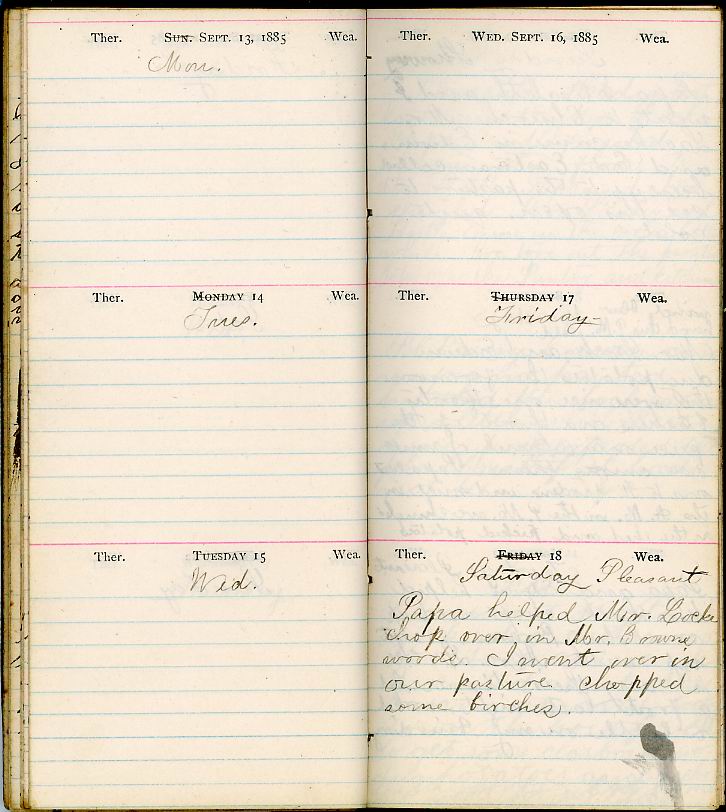 Ther. SUN. SEPT. 13, 1885 Wea.
Mon.
Ther. MONDAY 14 Wea.
Tues.
Ther. TUESDAY 15 Wea.
Wed.
Ther. WED. SEPT. 16, 1885 Wea.
Ther. THURSDAY 17 Wea.
Friday
Ther. FRIDAY 18 Wea.
Saturday Pleasant
Papa helped Mr. Locke
chop over in Mr. Browns
woods. I went over in
our pasture chopped
some birches.